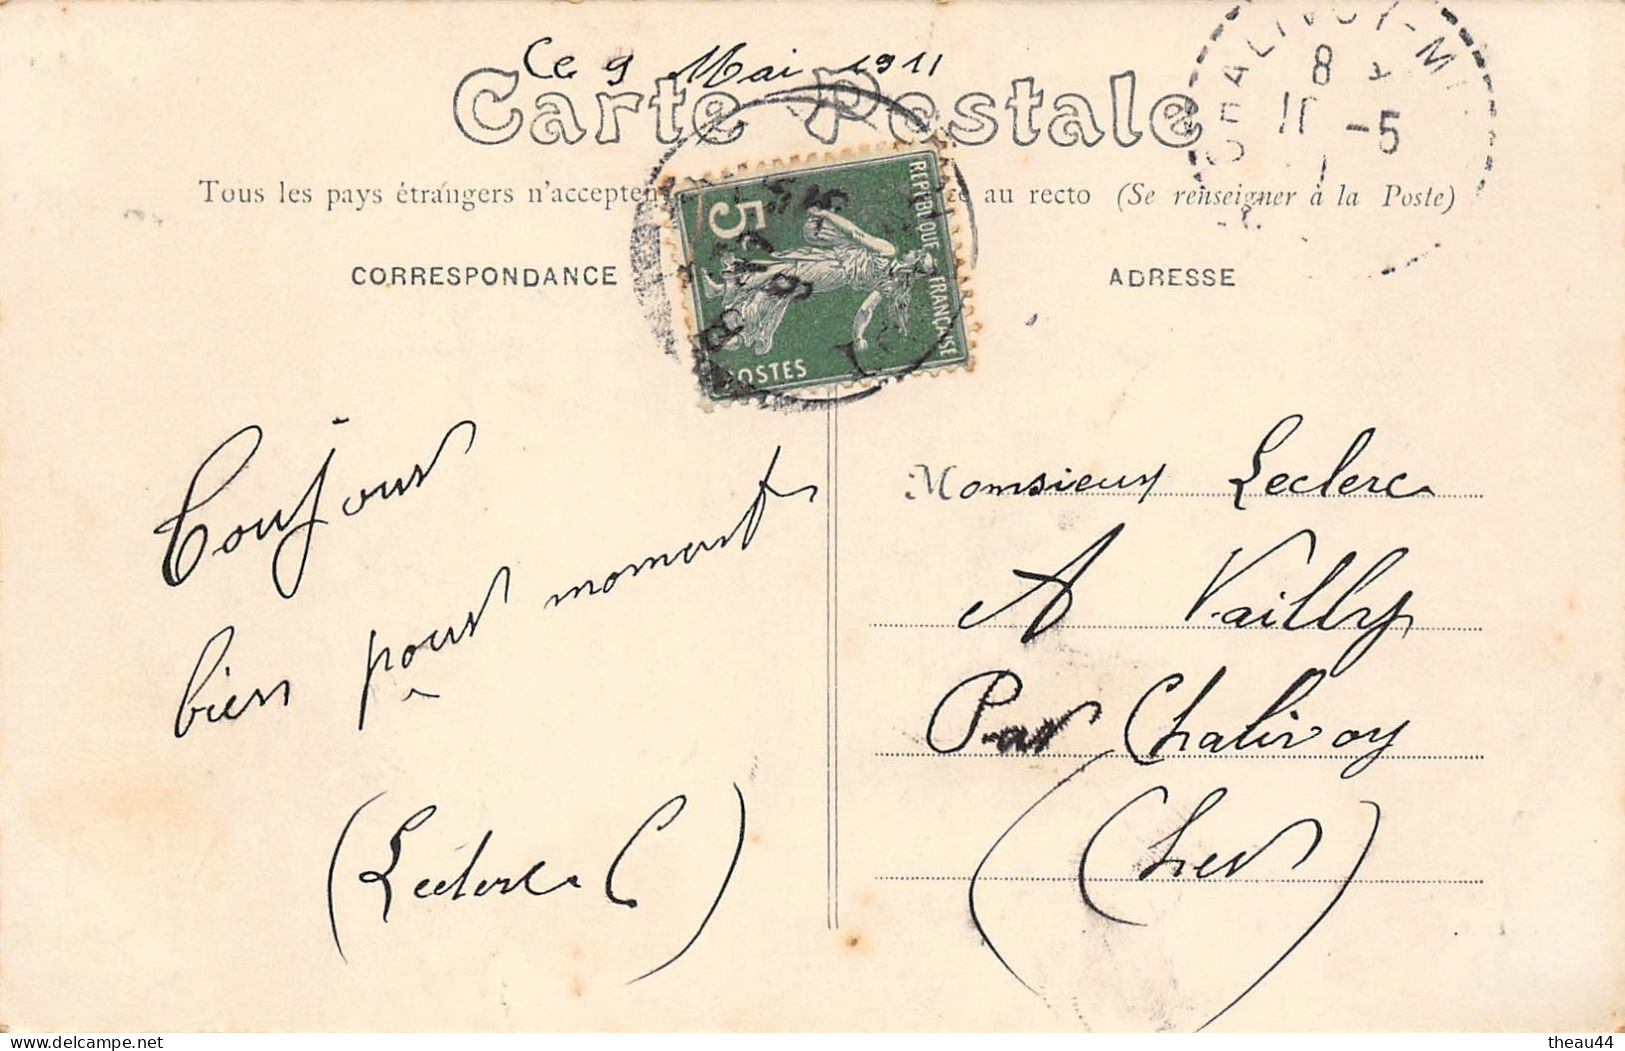 Ce 9 Mai 1911
Carte Postale
Tous les pays étrangers n'acceptent au recto (Se renseigner à la Poste)
CORRESPONDANCE
ADRESSE
CHALIVOY-M
8
11 -5
5
REPUBLIQUE FRANÇAISE
POSTES
Toujours
bien pour moment
(Leclerc C)
Monsieur Leclerc
A Vailly
Par Chalivoy
(Cher)
theau44